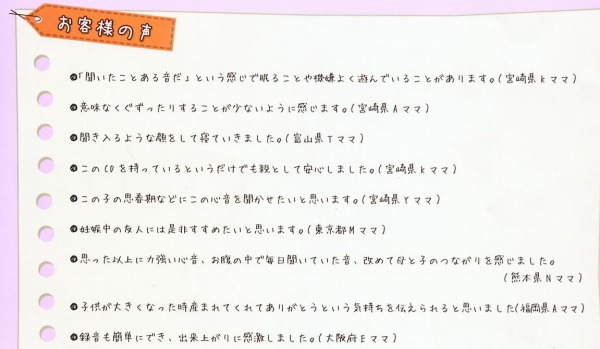 お客様の声
●「聞いたことある音だ」という感じで眠ることや機嫌よく遊んでいることがあります。(宮崎県Kママ)
●意味なくぐずったりすることが少ないように感じます。(宮崎県Aママ)
●聞き入るような顔をして寝ていきました。(富山県Tママ)
●このCDを持っているというだけでも親として安心しました。(宮崎県Kママ)
●この子の思春期などにこの心音を聞かせたいと思います。(宮崎県Yママ)
●妊娠中の友人には是非すすめたいと思います。(東京都Mママ)
●思った以上に力強い心音、お腹の中で毎日聞いていた音、改めて母と子のつながりを感じました。
(熊本県Nママ)
●子供が大きくなった時産まれてくれてありがとうという気持ちを伝えられると思いました(福岡県Aママ)
●録音も簡単にでき、出来上がりに感激しました。(大阪府Eママ)